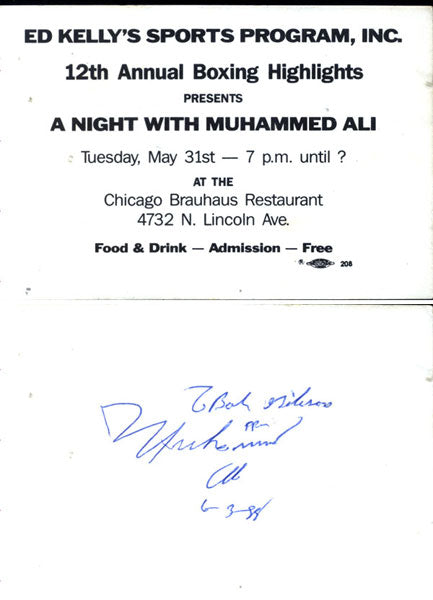 ED KELLY'S SPORTS PROGRAM, INC.
12th Annual Boxing Highlights
PRESENTS
A NIGHT WITH MUHAMMED ALI
Tuesday, May 31st — 7 p.m. until ?
AT THE
Chicago Brauhaus Restaurant
4732 N. Lincoln Ave.
Food & Drink — Admission — Free
208
To Bob
Muhammad
Ali
6-3-94